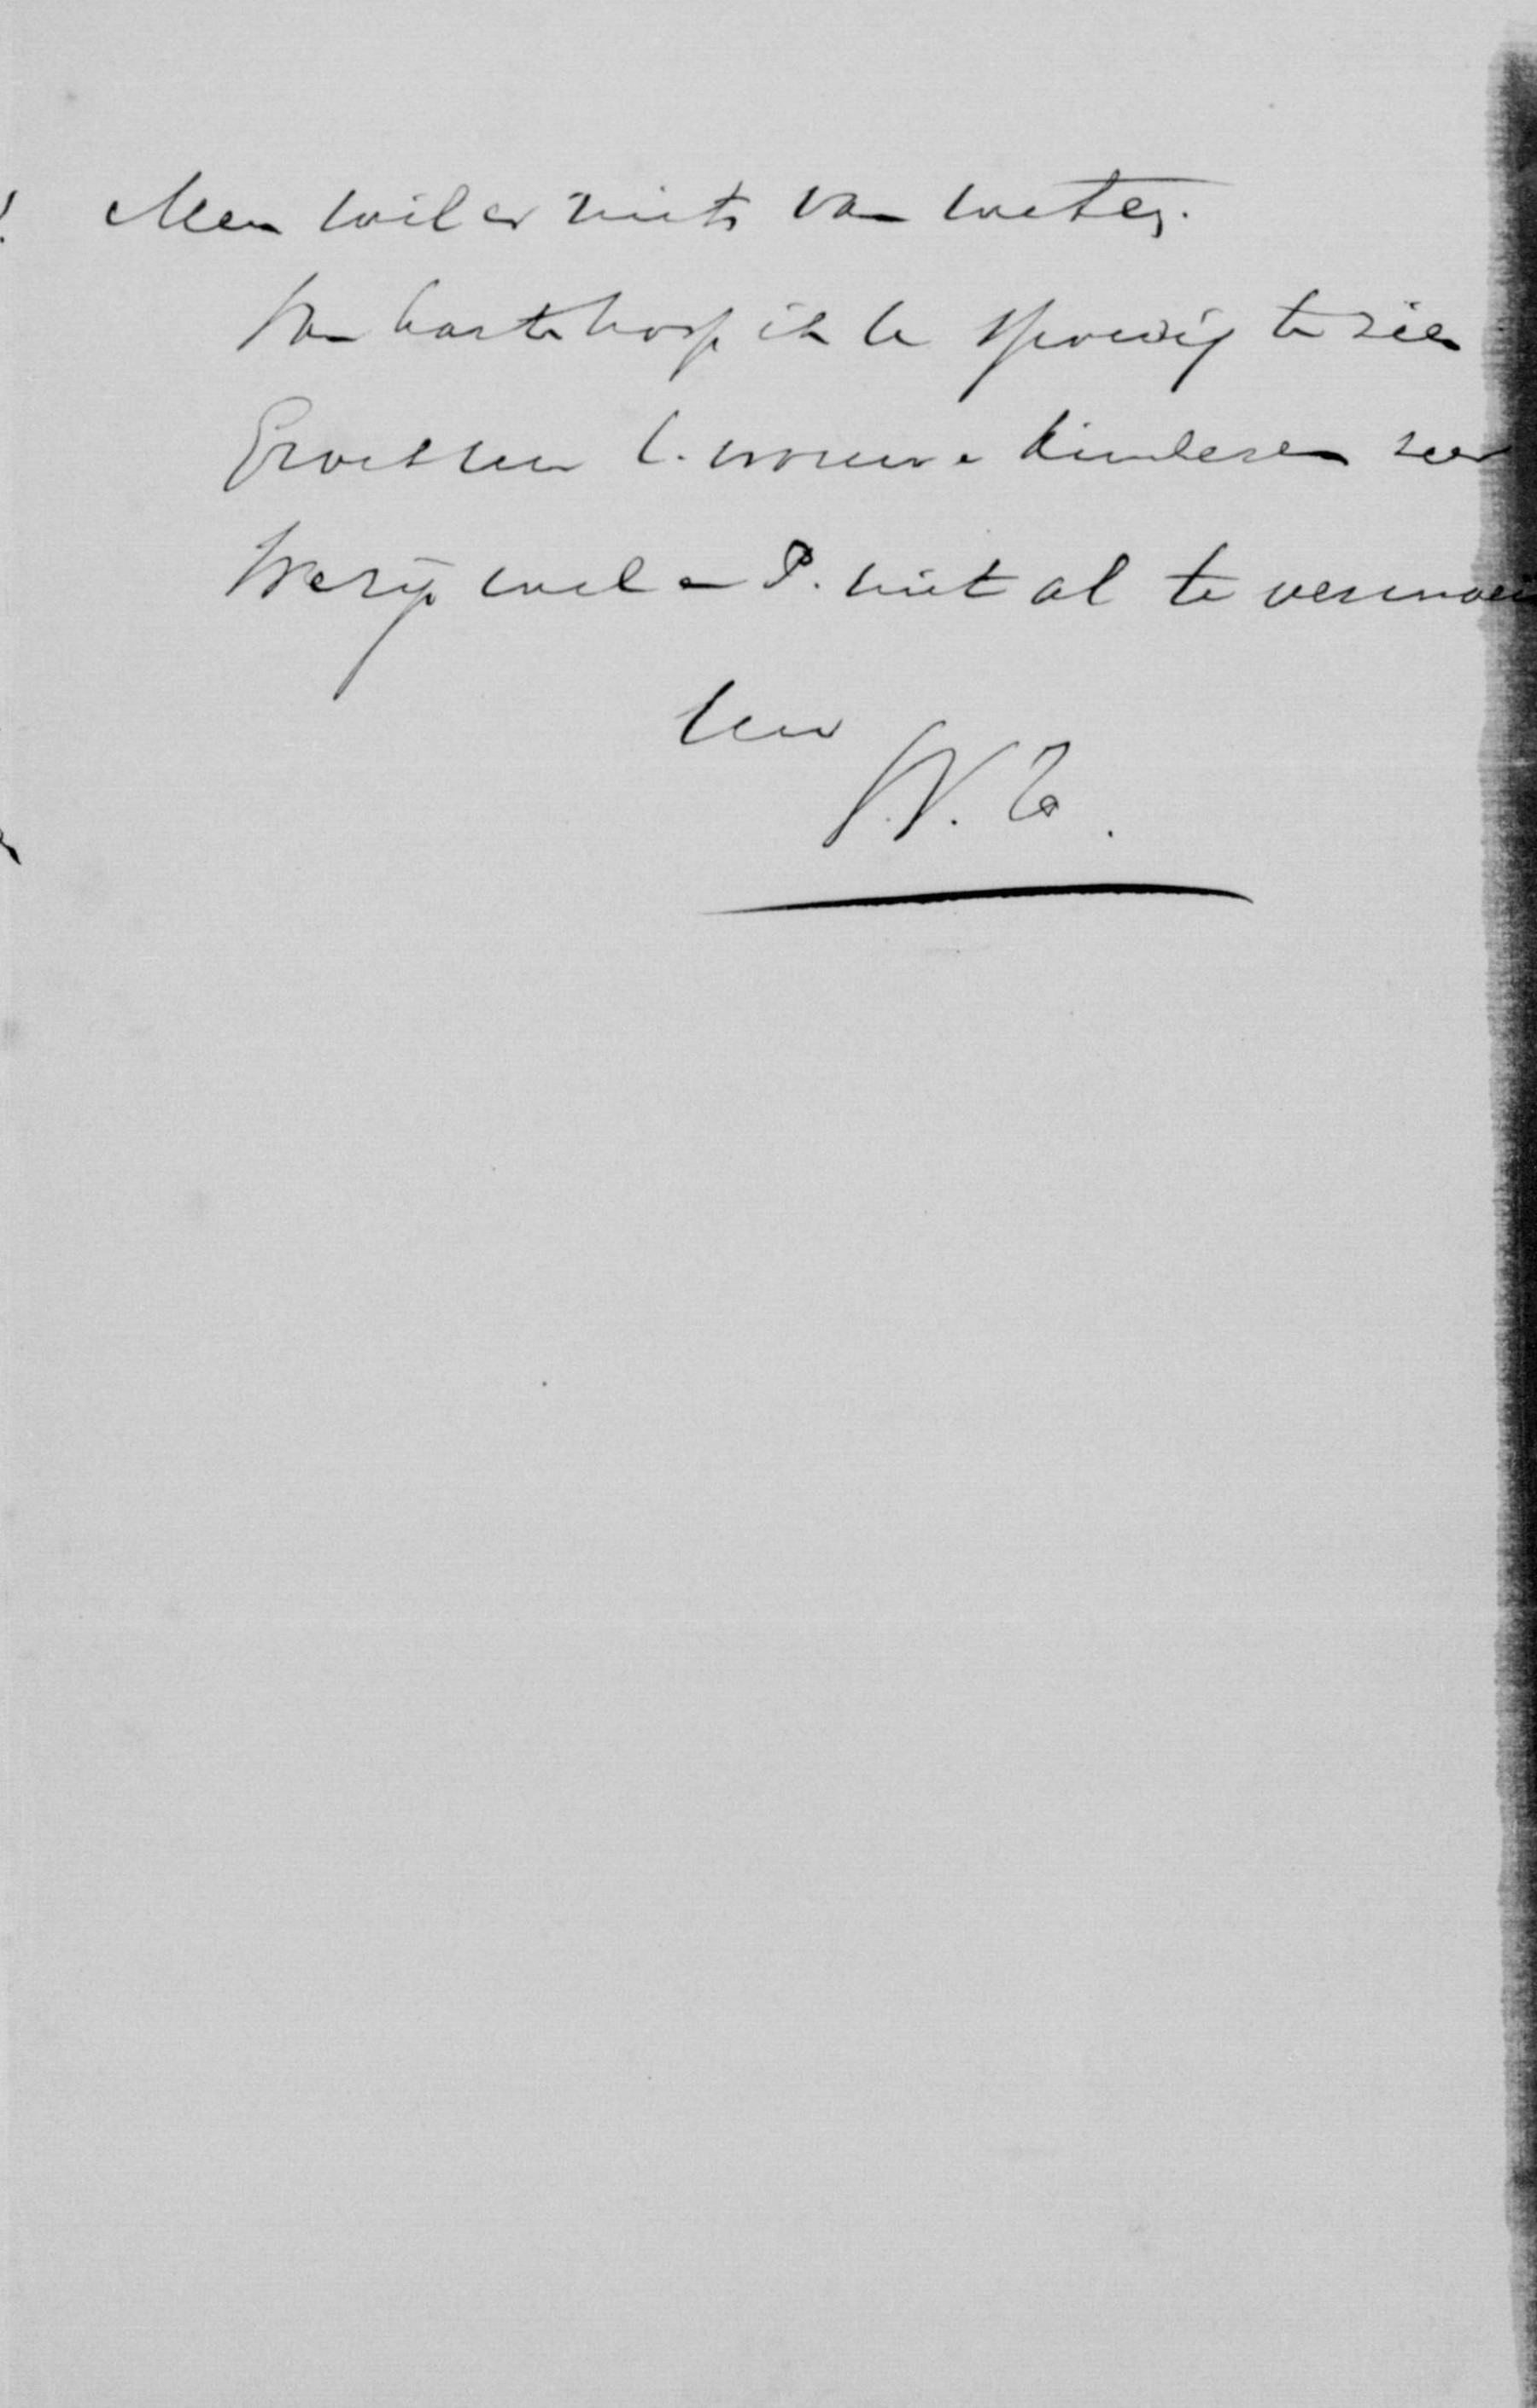 Men wil er niets van weten.
Van harte hoop ik U spoedig te zien
Groet uw l. vrouw & kinderen zeer
Werp wel & P. niet al te vermoei
Uw
W. Z.